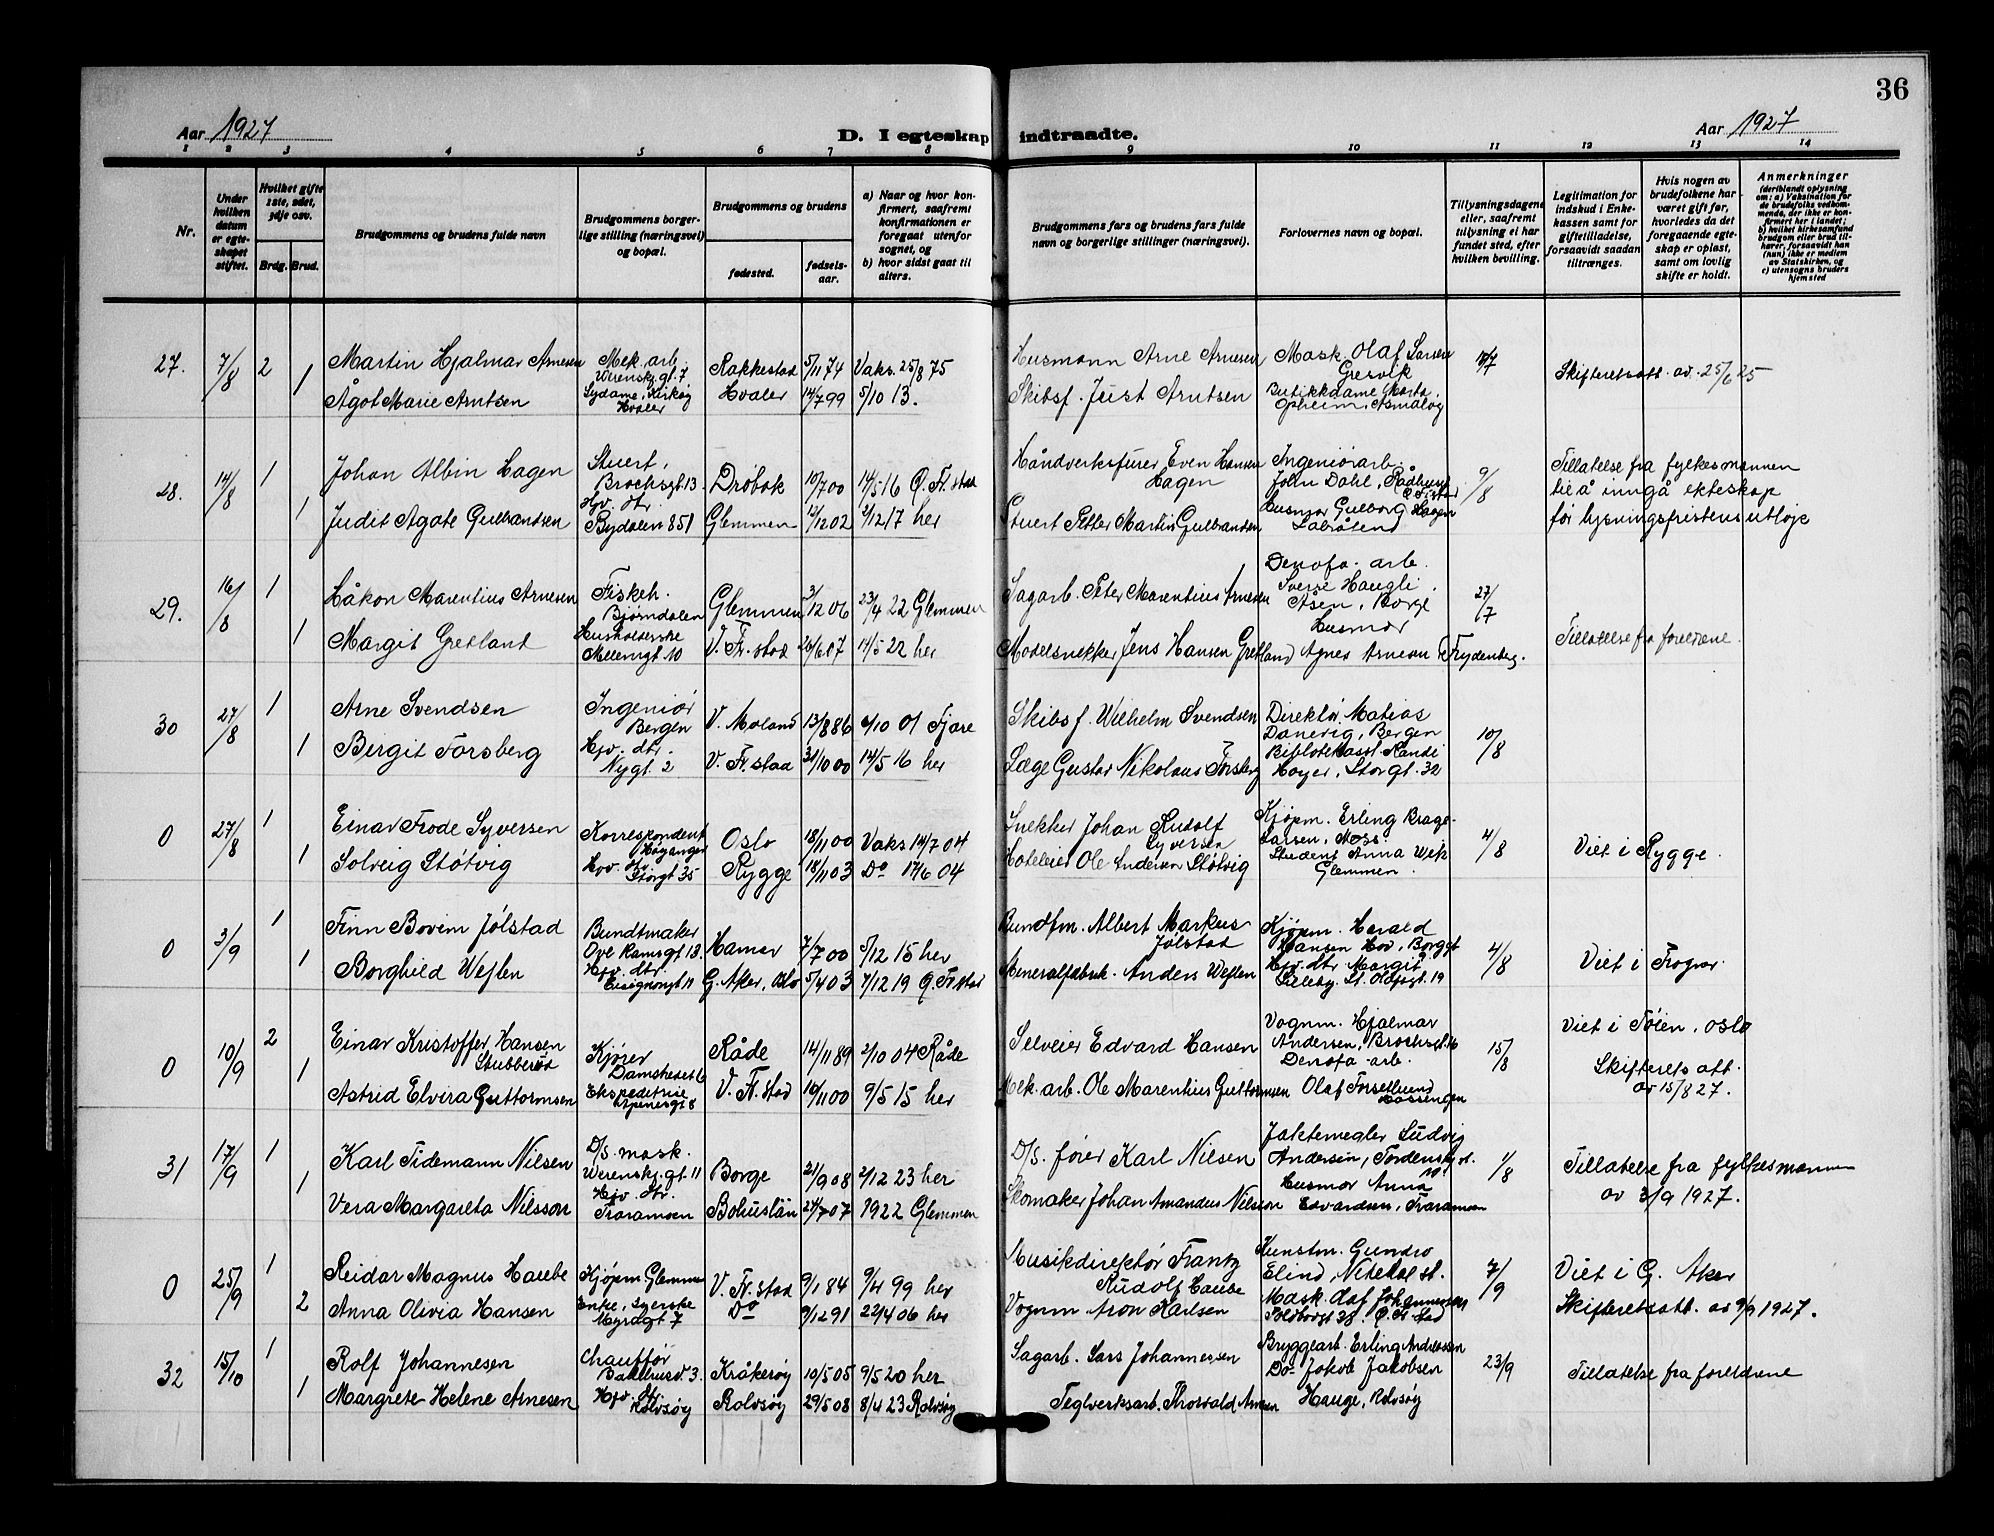 36
Aar 1927
D. I egteskap indtraadte.
Aar 1927
1 2 3 4 5 6 7 8 9 10 11 12 13 14
Nr.
Under hvilken datum er egteskapet stiftet.
Hvilket gifte 1ste, 2det, 3dje osv.
Brdg. Brud.
Brudgommens og brudens fulde navn
Brudgommens borgerlige stilling (næringsvei) og bopæl.
Brudgommens og brudens
fødested.
fødselsaar.
a) Naar og hvor konfirmert, saafremt konfirmationen er foregaat utenfor sognet, og
b) hvor sidst gaat til alters.
Brudgommens fars og brudens fars fulde navn og borgerlige stillinger (næringsvei).
Forlovernes navn og bopæl.
Tillysningsdagene eller, saafremt tillysning ei har fundet sted, efter hvilken bevilling.
Legitimation for indskud i Enkekassen samt for giftetilladelse, forsaavidt saadan tiltrænges.
Hvis nogen av brudefolkene har været gift før, hvorledes da det foregaaende egteskap er opløst, samt om lovlig skifte er holdt.
Anmerkninger
(deriblandt oplysning om: a) Vaksination for de brudefolks vedkommende, der ikke er konfirmert her i landet; b) hvilket kirkesamfund brudgom eller brud tilhører, forsaavidt han (hun) ikke er medlem av Statskirken, og c) utensogns bruders hjemsted
27. 7/8 2 Martin Hjalmar Arnesen Mek. arb. Werenskj.gt. 7 Rakkestad 5/11 74 Vaks. 25/8 75 Husmann Arne Arnesen Mask. Olaf Larsen Gresvik Skifteretsatt. av. 25/6 25
1 Ågot Marie Arntsen Sydame, Kirkøy Hvaler Hvaler 14/7 99 5/10 13. Skibsf. Just Arntsen Butikkdame Marta Opheim, Asmaløy
28. 14/8 1 Johan Albin Hagen Stuert, Brochsgt. 13 Drøbak 10/7 00 14/5 16 Ø. Fr. stad Håndverksfører Even Hansen Hagen Ingeniørarb. John Dahl, Rådhusgt Ø. Fr. stad 9/8 Tillatelse fra fylkesmannen til å inngå ekteskap før lysningsfristens utløp
1 Judit Agate Gulbrandsen Hjv. dtr. Bydalen 851 Glemmen 12/12 02 2/12 17 her Stuert Petter Martin Gulbrandsen Husmor Gulborg Hagen Labråten
29. 16/8 1 Håkon Marentius Arnesen Fiskeh. Bjørndalen Glemmen 3/12 06 23/4 22 Glemmen Sagarb. Peter Marentius Arnesen Denofa-arb. Sverre Haugli Åsen, Borge 27/7
1 Margit Gretland Husholderske Mellemgt 10 V. Fr. stad 26/6 07 14/5 22 her Modelsnekker Jens Hansen Gretland Husmor Agnes Arnesen Frydenberg. Tillatelse fra foreldrene.
30 27/8 1 Arne Svendsen Ingeniør Bergen V. Moland 13/8 86 6/10 01 Fjære Skibsf. Wilhelm Svendsen Direktør Matias Danevig, Bergen 10/8
1 Bergit Forsberg Hjv. dtr. Nygt. 2 V. Fr. stad 31/10 00 14/5 16 her Læge Gustav Nikolaus Forsberg Bibliotekasst. Randi Høyer, Storgt. 32
0 27/8 1 Einar Frode Syversen Korrespondent Høyanger Oslo 18/11 00 Vaks 14/7 04 Snekker Johan Rudolf Syversen Kjøpm. Erling Krage-Larsen, Moss 4/8 Viet i Rygge.
1 Solveig Støtvig Hjv. dtr. Storgt 35 Rygge 18/11 03 Do 17/6 04 Hoteleier Ole Andersen Støtvig Student Anna Wik Glemmen
0 3/9 1 Finn Bovim Jølstad Bundtmaker Ove Ramsgt 13 Hamar 7/7 00 5/12 15 her Bundtm. Albert Markus Jølstad Kjøpm. Harald Hansen Hov, Borggt 4/8 Viet i Frogner.
1 Borghild Wejlen Hjv. dtr. G. Aker, Oslo 5/4 03 7/12 19 Ø. Fr. stad Mineralfabrik. Anders Wejlen Hjv. dtr. Margit Lilleby, St. Olafsgt. 19
0 10/9 2 Einar Kristoffer Hansen Stubberød Kjører Damstredet 6 Råde 14/11 89 2/10 04 Råde Selveier Edvard Hansen Vognm. Hjalmar Andersen, Brochsgt. 16 15/8 Viet i Tøien, Oslo
1 Astrid Elvira Guttormsen Ekspeditrise V. Fr. stad 10/11 00 9/5 15 her Mek. arb. Ole Marentius Guttormsen Denofa-arb. Olaf Forsetlund Skifterets att. av 15/8 27.
31 17/9 1 Karl Tidemann Nilsen D/s. mask. Werenskj. gt. 11 Borge 21/9 08 2/12 23 her D/s. fører Karl Nilsen Jaktemegler Ludvig Andersen, Tordenskj. st. 10 1/8 Tillatelse fra fylkesmannen av 3/9 1927.
1 Vera Margareta Nilsson Hjv. dtr. Traramoen Bohuslän 24/7 07 1922 Glemmen Skomaker Johan Amandus Nilsson Husmor Anna Edvardsen, Traramoen
0 25/9 1 Reidar Magnus Haube Kjøpm Glemmen V. Fr. stad 9/1 84 9/4 99 her Musikdirektør Frantz Rudolf Haube Kunstm. Gundro Elind, Nitedal st. 7/9 Viet i G. Aker
2 Anna Olivia Hansen Enke, Syerske Myragt 7 Do 9/12 91 22/4 06 her Vognm Aron Karlsen Mask. Olaf Johannessen Toldbodgt 38, Ø. Fr. stad Skifteretsatt. av 9/9 1927.
32 15/10 1 Rolf Johannesen Chauffør Bakkhusv. 3. Kråkerøy 10/5 05 9/5 20 her Sagarb. Lars Johannesen Bryggearb. Erling Andreassen 23/9 Tillatelse fra foreldrene
1 Margrete Helene Arnesen Hjv. dtr. Rolvsøy Rolvsøy 29/5 08 8/4 23 Rolvsøy Teglverksarb. Thorvald Arnesen Do- Jakob Jakobsen Hauge, Rolvsøy